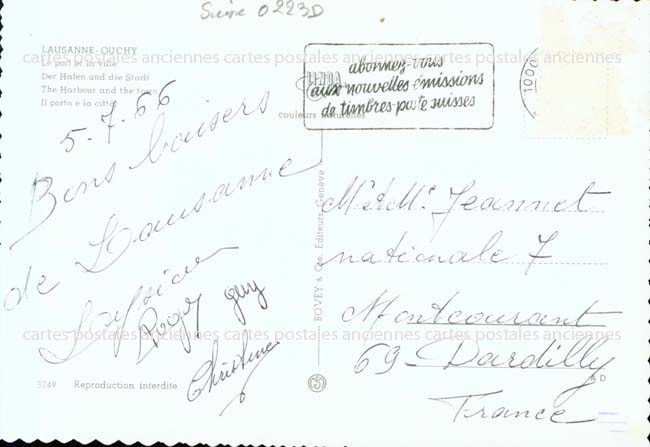 Suisse 0223D
LAUSANNE-OUCHY
Le port et la ville
Der Hafen und die Stadt
The Harbour and the town
Il porto e la città
couleurs naturelles
abonnez-vous
aux nouvelles émissions
de timbres-poste suisses
1000
5.7.66
Bons baisers
de Lausanne
Roger Guy
Christine
5249 Reproduction interdite
BOVEY & Cie. Editeurs, Genève
Mr et Me Jeannet
nationale 7
Montcourant
69 - Dardilly
France
D
cartes postales anciennes cartes postales anciennes cartes postales anciennes
cartes postales anciennes cartes postales anciennes cartes postales anciennes
cartes postales anciennes cartes postales anciennes cartes postales anciennes